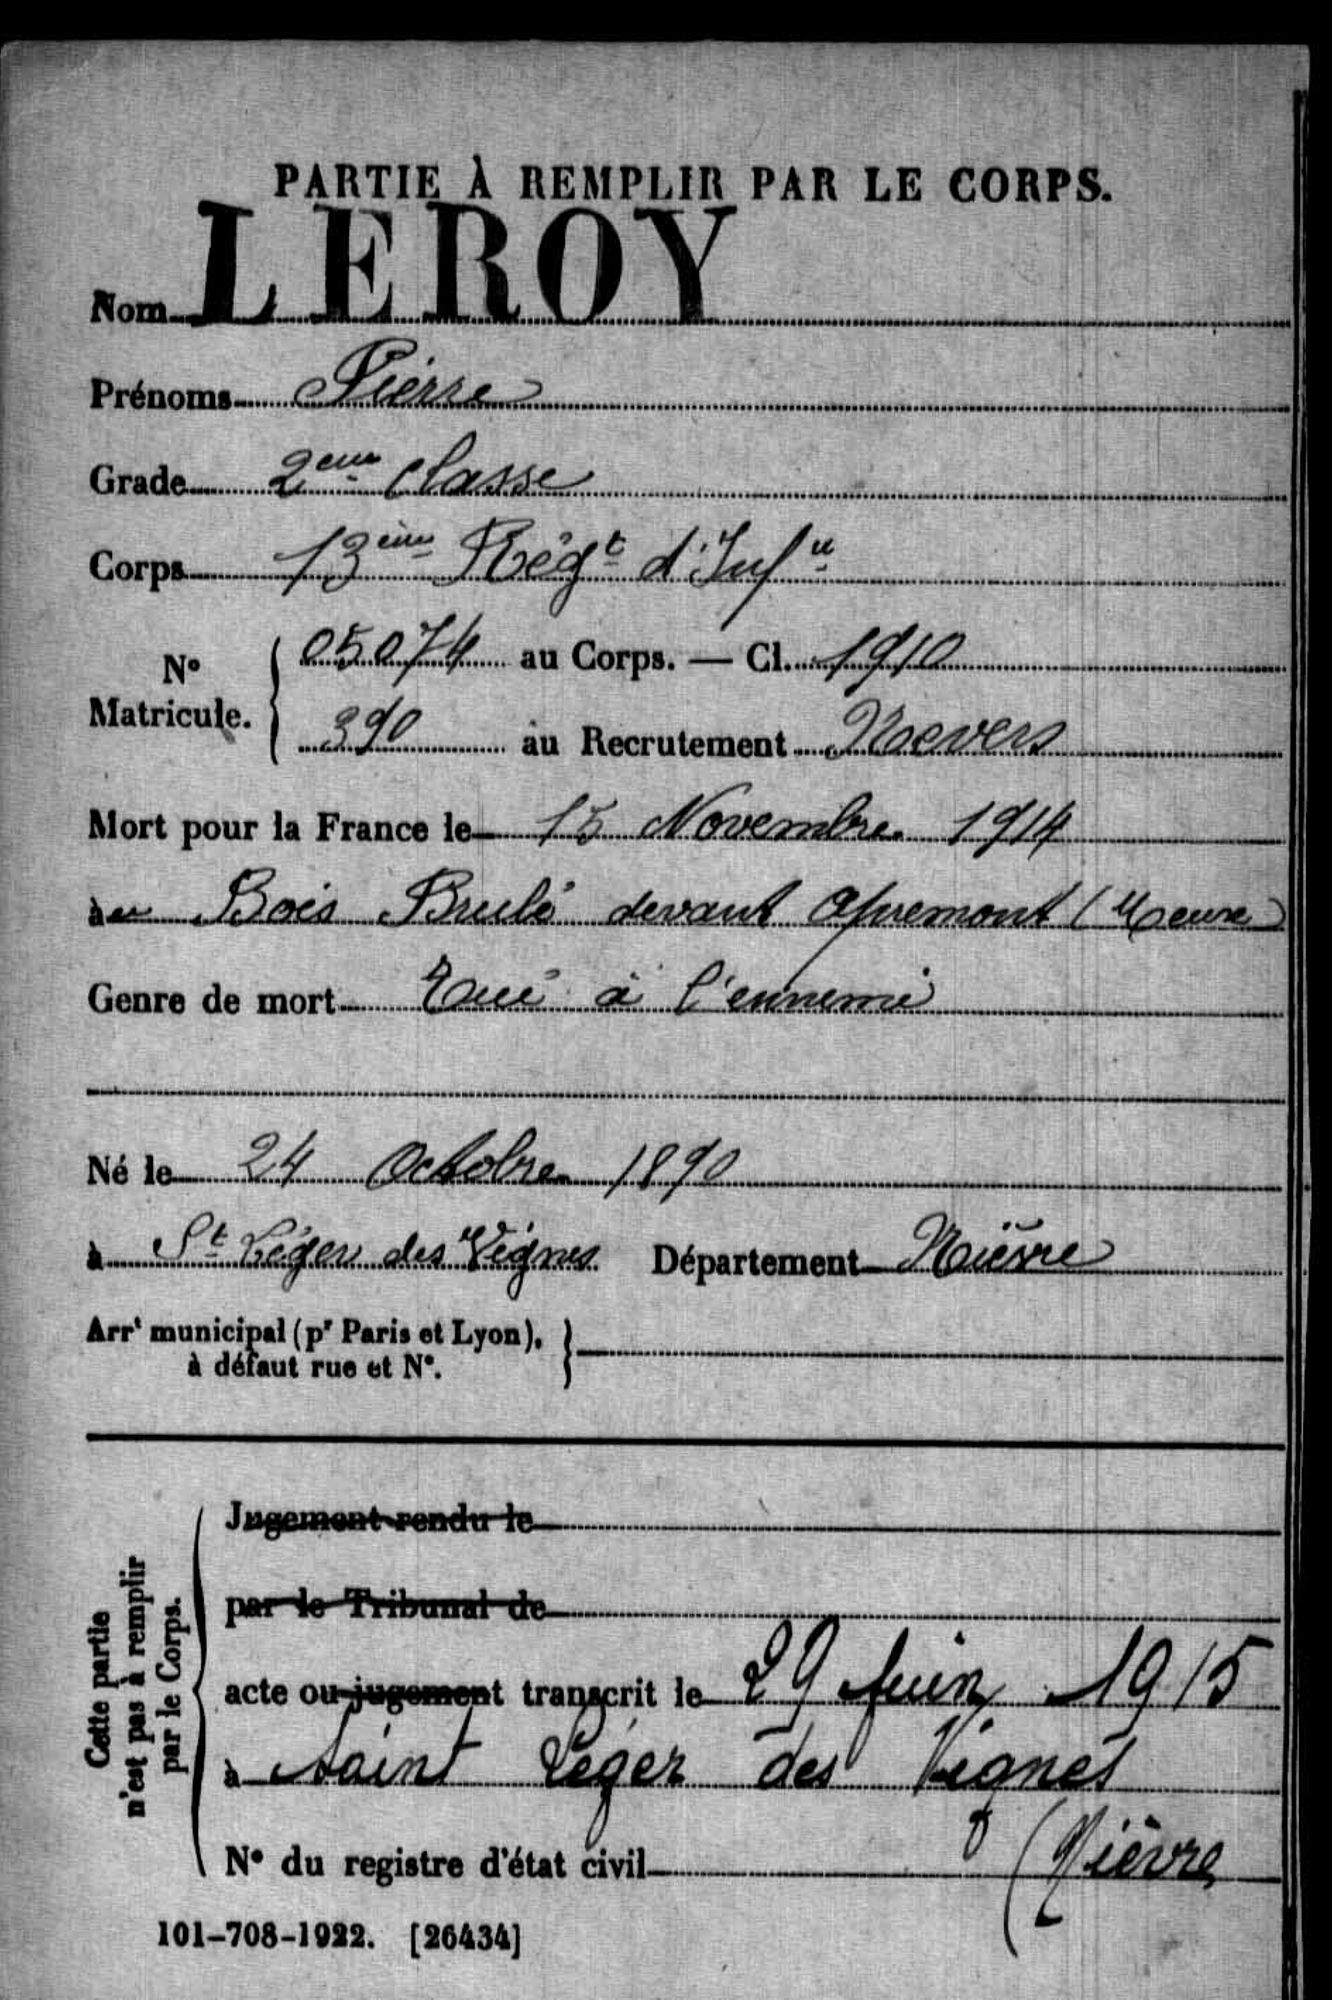 PARTIE À REMPLIR PAR LE CORPS.
Nom LEROY
Prénoms Pierre
Grade 2eme Classe
Corps 13ème Régt d'Infie
No Matricule. { 05074 au Corps. — Cl. 1910
390 au Recrutement Nevers
Mort pour la France le 15 Novembre 1914
au Bois Brulé devant Apremont (Meuse)
Genre de mort Tué à l'ennemi
Né le 24 Octobre 1890
à St Léger des Vignes Département Nièvre
Arrt municipal (pr Paris et Lyon), }
à défaut rue et No.
Cette partie n'est pas à remplir par le Corps.
Jugement rendu le
par le Tribunal de
acte ou jugement transcrit le 29 Juin 1915
à Saint Léger des Vignes
(Nièvre
No du registre d'état civil
101-708-1922. [26434]